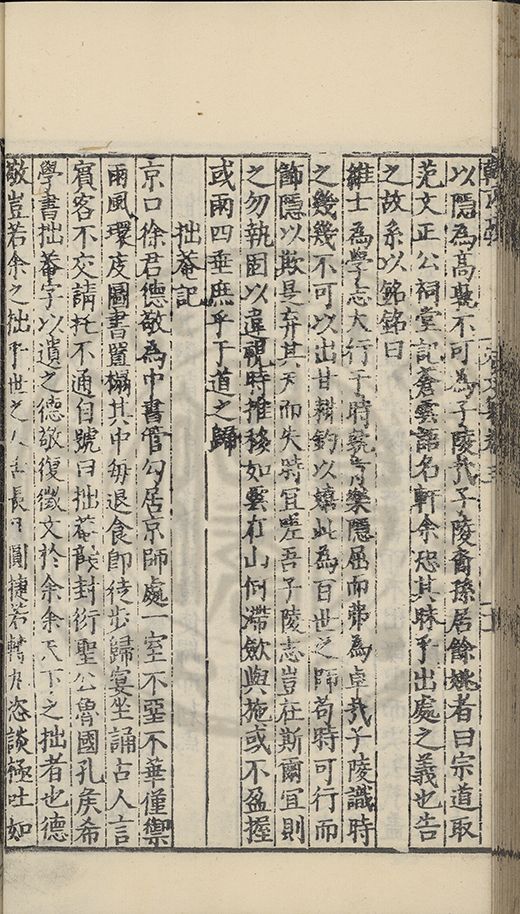 以隱為高嘅不可為子陵哉子陵裔孫居餘姚者曰宗道取
范文正公祠堂記蒼雲語名軒余恐其昧乎出處之義也告
之故系以銘銘曰
維士為學志大行于時孰肯樂隱屈而弗為卓哉子陵識時
之幾幾不可以出甘耕釣以嬉此為百世之師苟時可行而
飾隱以欺是弃其天而失時宜嗟吾子陵志豈在斯爾宜則
之勿執固以違視時推移如雲在山何滯斂與施或不盈握
或雨四垂庶乎于道之歸
拙菴記
京口徐君德敬為中書管勾居京師處一室不堊不華僅禦
雨風環庋圖書置榻其中每退食即徒步歸宴坐誦古人言
賓客不交請托不通自號曰拙菴龔封衍聖公魯國孔侯希
學書拙菴字以遺之德敬復徵文於余余天下之拙者也德
敬豈若余之拙乎世之人舌長且圓捷若轉丸恣談極吐如